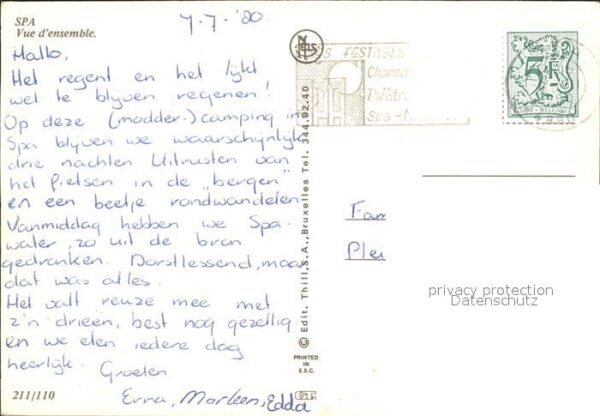 SPA
Vue d'ensemble.
7-7-'80
Hallo,
Het regent en het lijkt
wel te blijven regenen!
Op deze (modder-)camping in
Spa blijven we waarschijnlijk
drie nachten Uitrusten van
het fietsen in de "bergen"
en een beetje rondwandelen
Vanmiddag hebben we Spa-
water, zo uit de bron
gedronken. Dorstlessend, maar
dat was alles.
Het valt reuze mee met
z'n drieën, best nog gezellig
en we eten iedere dag
heerlijk. Groeten
Erna, Marleen, Edda
211/110
NELS
© Edit. Thill, S.A., Bruxelles Tel. 344.92.40
PRINTED
IN
E.E.C.
FESTIVALS
Chanson
Théâtre
Spa -
5F
Fam
Plei
privacy protection
Datenschutz